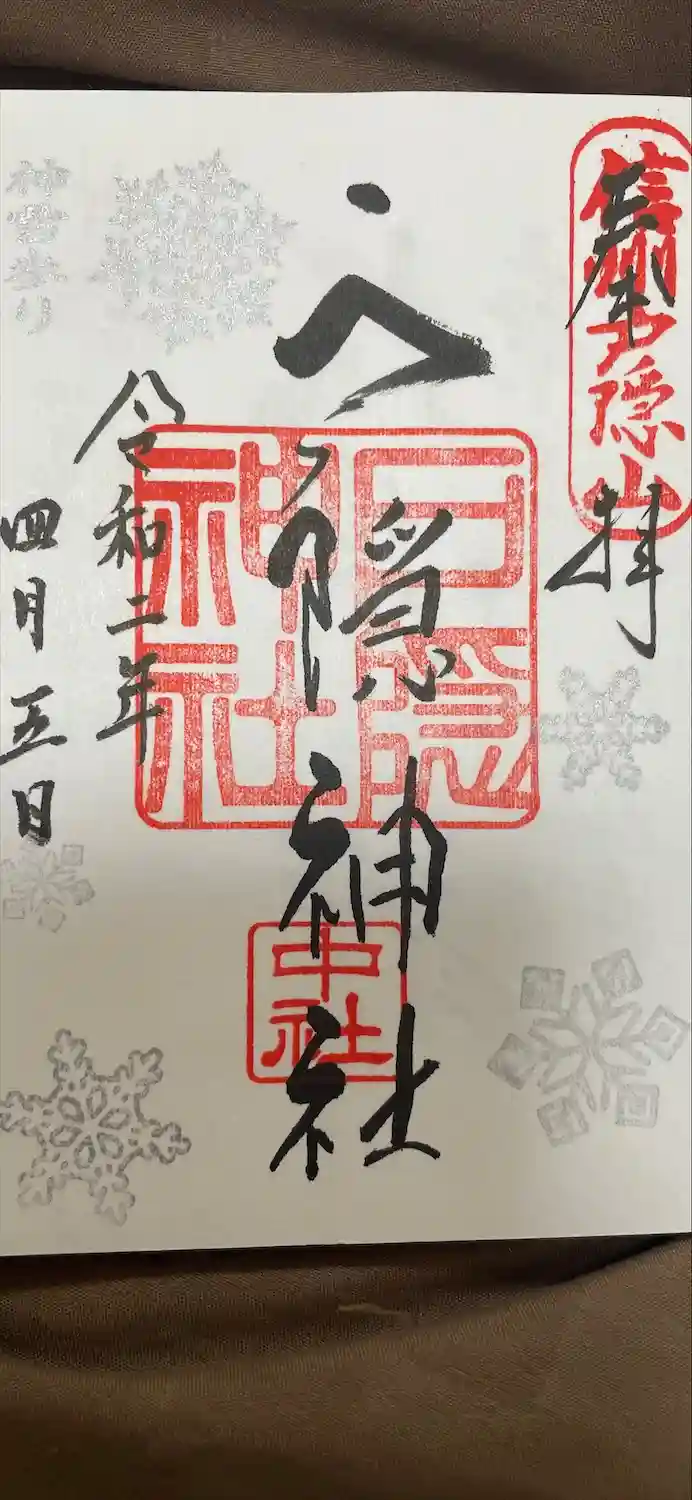 信州戸隠山
奉拝
戸隠神社
戸隠神社
中社
令和二年
四月五日